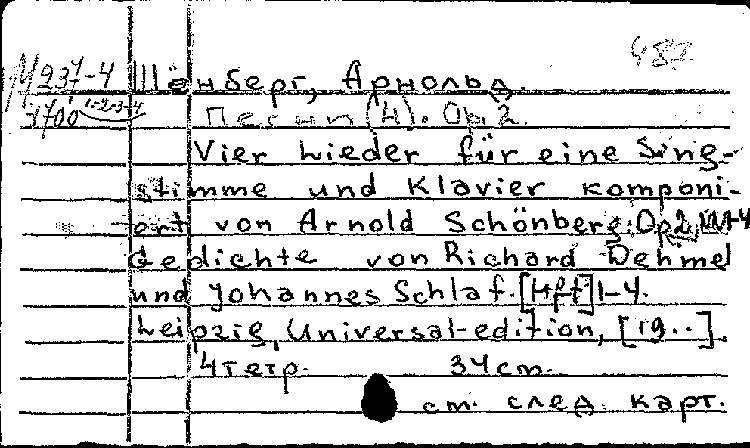 487
М 237-4 Шенберг, Арнольд.
1700 1-2-3-4 Песни (4). Op 2.
Vier Lieder für eine Sing-
stimme und Klavier komponi-
ert von Arnold Schönberg. Op 2, №1-4
Gedichte von Richard Dehmel
und Johannes Schlaf. [Hft] 1-4.
Leipzig, Universal-edition, [19..].
4 тетр. 34 cm.
см. след. карт.